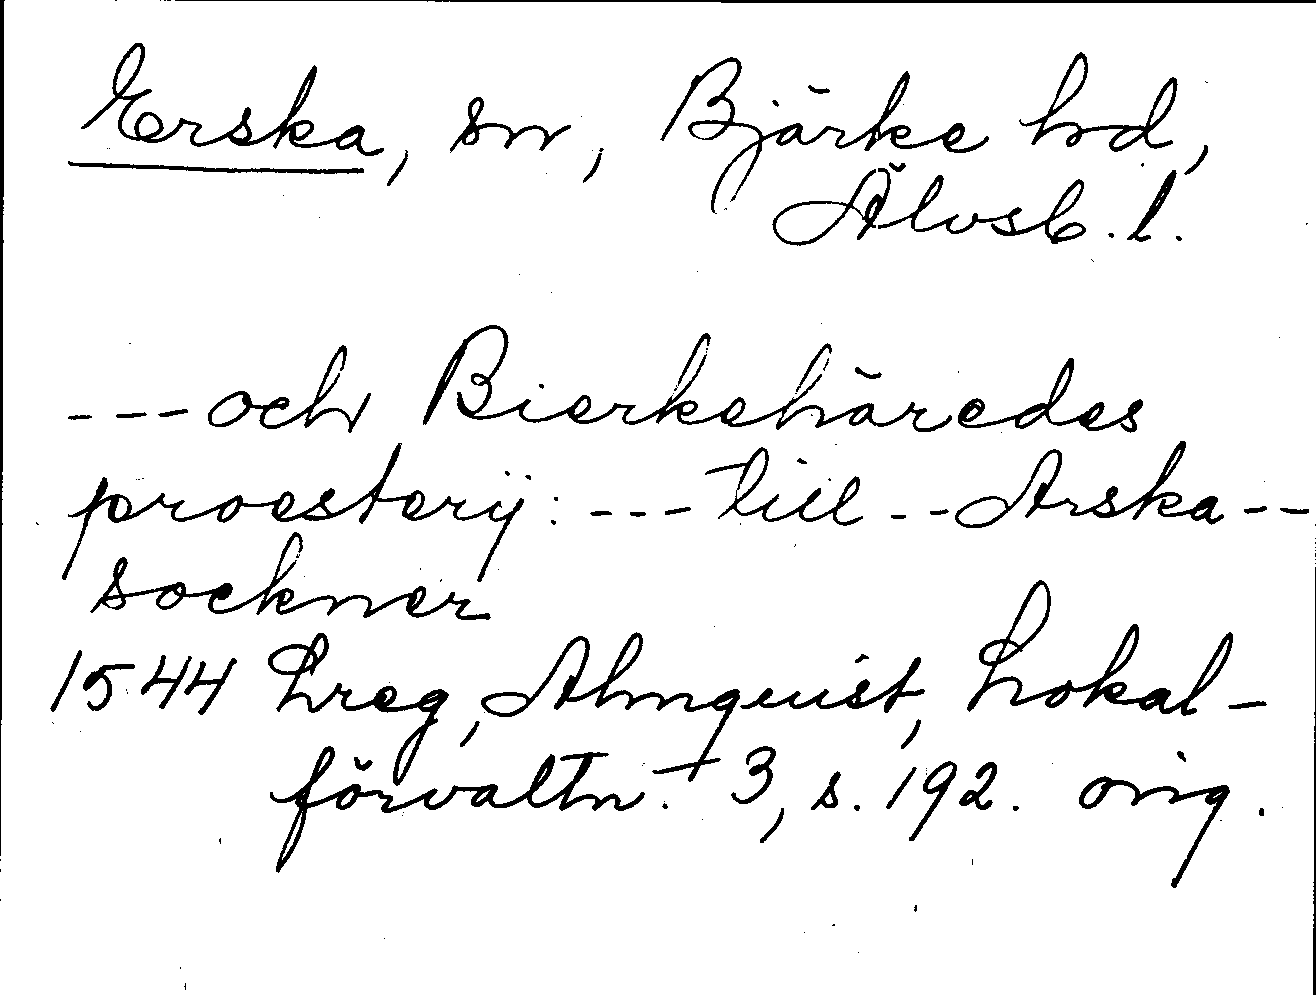 Erska, sn, Bjärke hd,
Älvsb. l.
---och Bierkehäredes
proesterij: --- till -- Arska --
sockner
1544 Lreg, Almquist, Lokal-
förvaltn. 3, s. 192. orig.